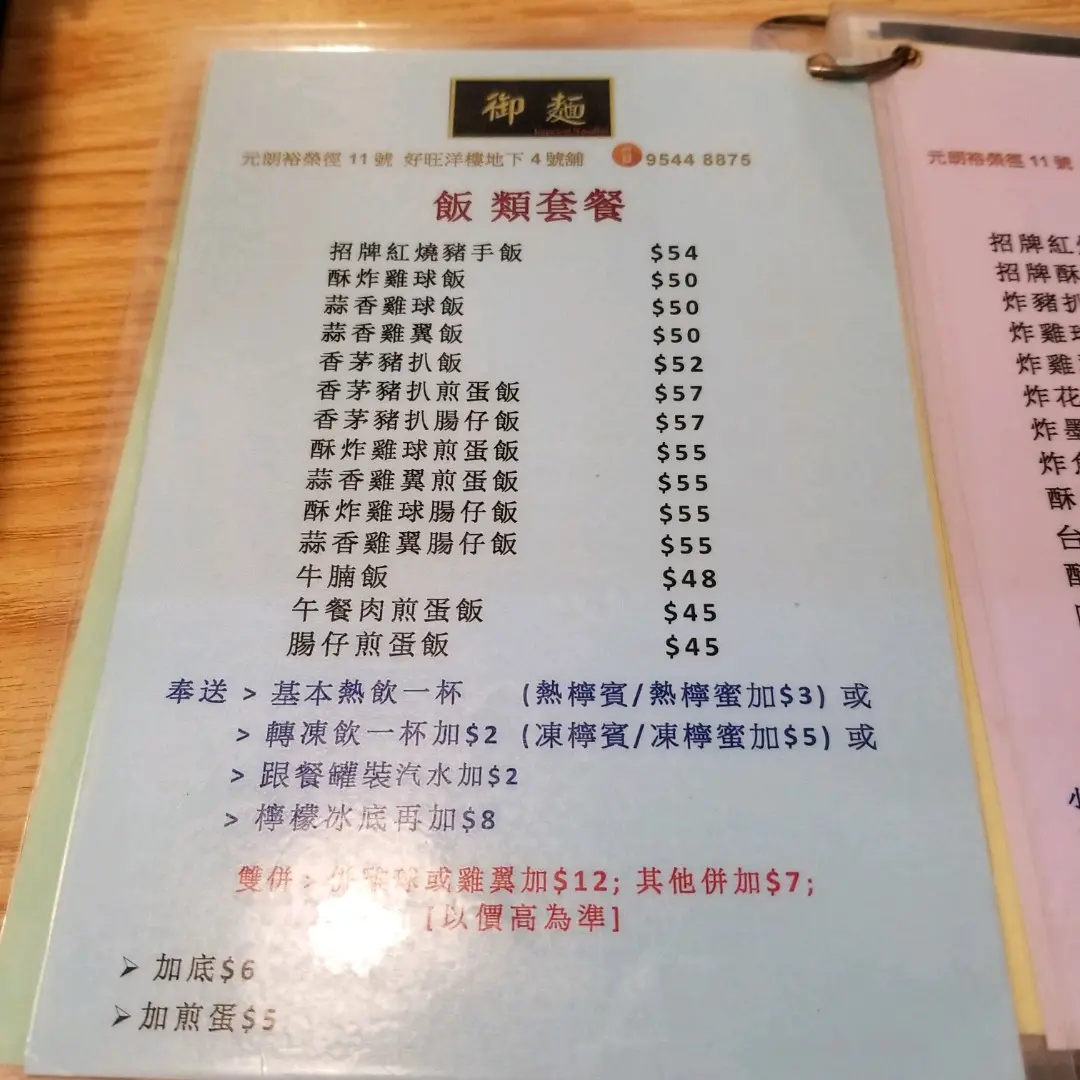 御麵
元朗裕榮徑 11 號 好旺洋樓地下 4 號舖 9544 8875
飯 類套餐
招牌紅燒豬手飯 $54
酥炸雞球飯 $50
蒜香雞球飯 $50
蒜香雞翼飯 $50
香茅豬扒飯 $52
香茅豬扒煎蛋飯 $57
香茅豬扒腸仔飯 $57
酥炸雞球煎蛋飯 $55
蒜香雞翼煎蛋飯 $55
酥炸雞球腸仔飯 $55
蒜香雞翼腸仔飯 $55
牛腩飯 $48
午餐肉煎蛋飯 $45
腸仔煎蛋飯 $45
奉送 > 基本熱飲一杯 (熱檸賓/熱檸蜜加$3) 或
> 轉凍飲一杯加$2 (凍檸賓/凍檸蜜加$5) 或
> 跟餐罐裝汽水加$2
> 檸檬冰底再加$8
雙併 > 併雞球或雞翼加$12; 其他併加$7;
[以價高為準]
➢ 加底$6
➢ 加煎蛋$5
元朗裕榮徑 11 號
招牌紅
招牌酥
炸豬扒
炸雞
炸雞
炸花
炸墨
炸
酥
台